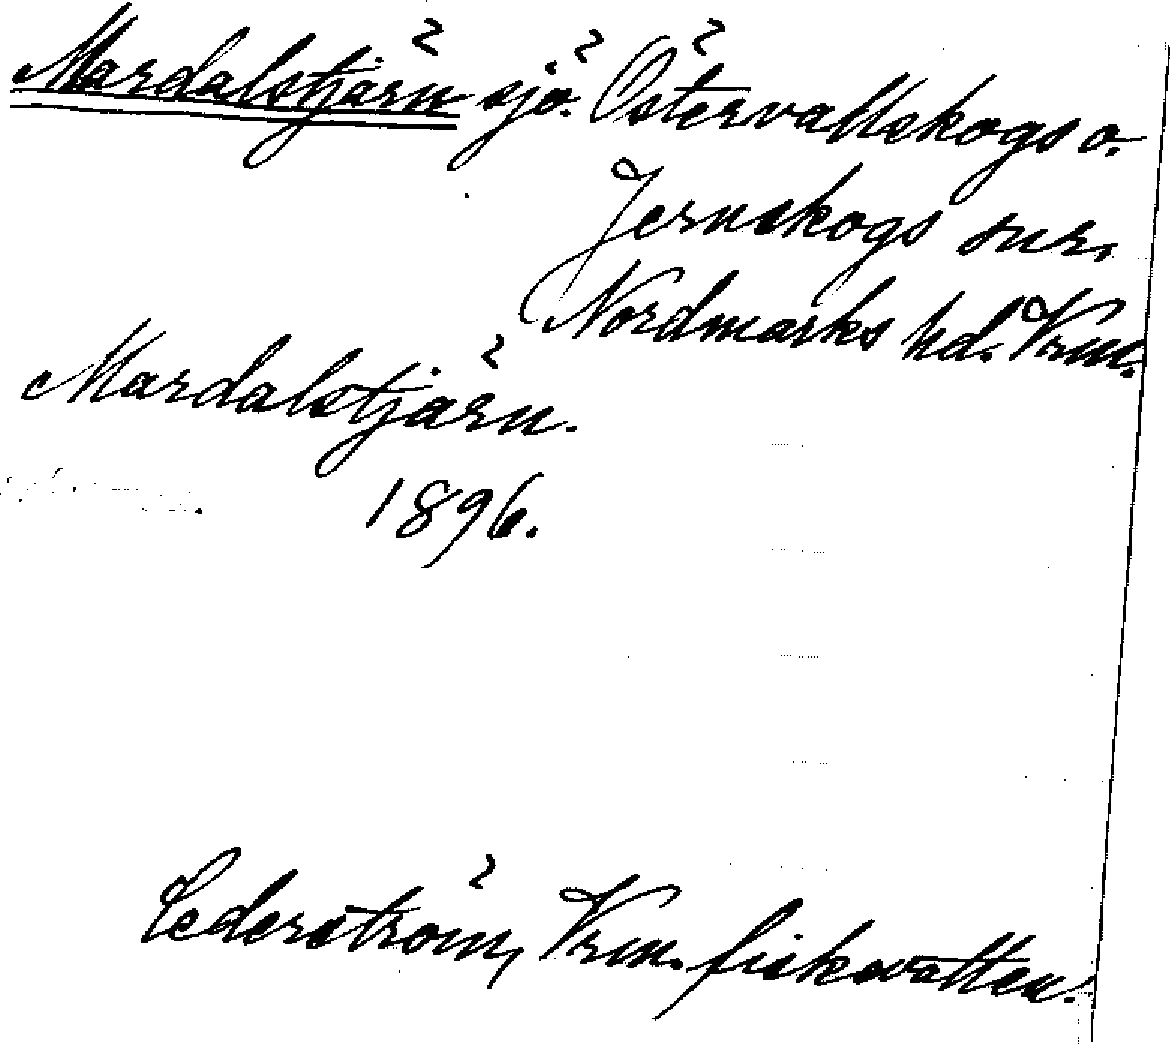 Mardalstjärn sjö. Östervallskogs o.
Jernskogs snr,
Nordmarks hd. Vrm.
Mardalstjärn.
1896.
Cederström, Vrm. fiskevatten.